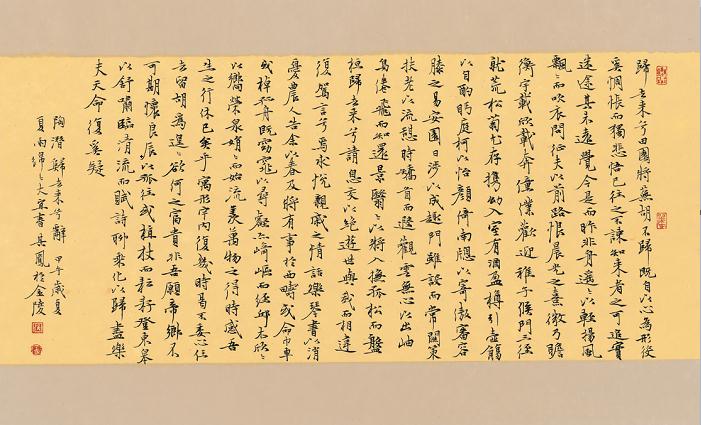 歸去來兮田園將蕪胡不歸既自以心為形役
奚惆悵而獨悲悟已往之不諫知來者之可追實
迷途其未遠覺今是而昨非舟遙遙以輕揚風
飄飄而吹衣問征夫以前路恨晨光之熹微乃瞻
衡宇載欣載奔僮僕歡迎稚子候門三徑
就荒松菊猶存攜幼入室有酒盈樽引壺觴
以自酌眄庭柯以怡顏倚南窗以寄傲審容
膝之易安園日涉以成趣門雖設而常關策
扶老以流憩時矯首而遐觀雲無心以出岫
鳥倦飛而知還景翳翳以將入撫孤松而盤
桓歸去來兮請息交以絕遊世與我而相違
復駕言兮焉求悅親戚之情話樂琴書以消
憂農人告余以春及將有事於西疇或命巾車
或棹孤舟既窈窕以尋壑亦崎嶇而經丘木欣欣
以嚮榮泉涓涓而始流羨萬物之得時感吾
生之行休已矣乎寓形宇內復幾時曷不委心任
去留胡為遑遑欲何之富貴非吾願帝鄉不
可期懷良辰以孤往或植杖而耘耔登東皋
以舒嘯臨清流而賦詩聊乘化以歸盡樂
夫天命復奚疑
陶潛歸去來兮辭 甲午歲夏
書吳鳳於金陵